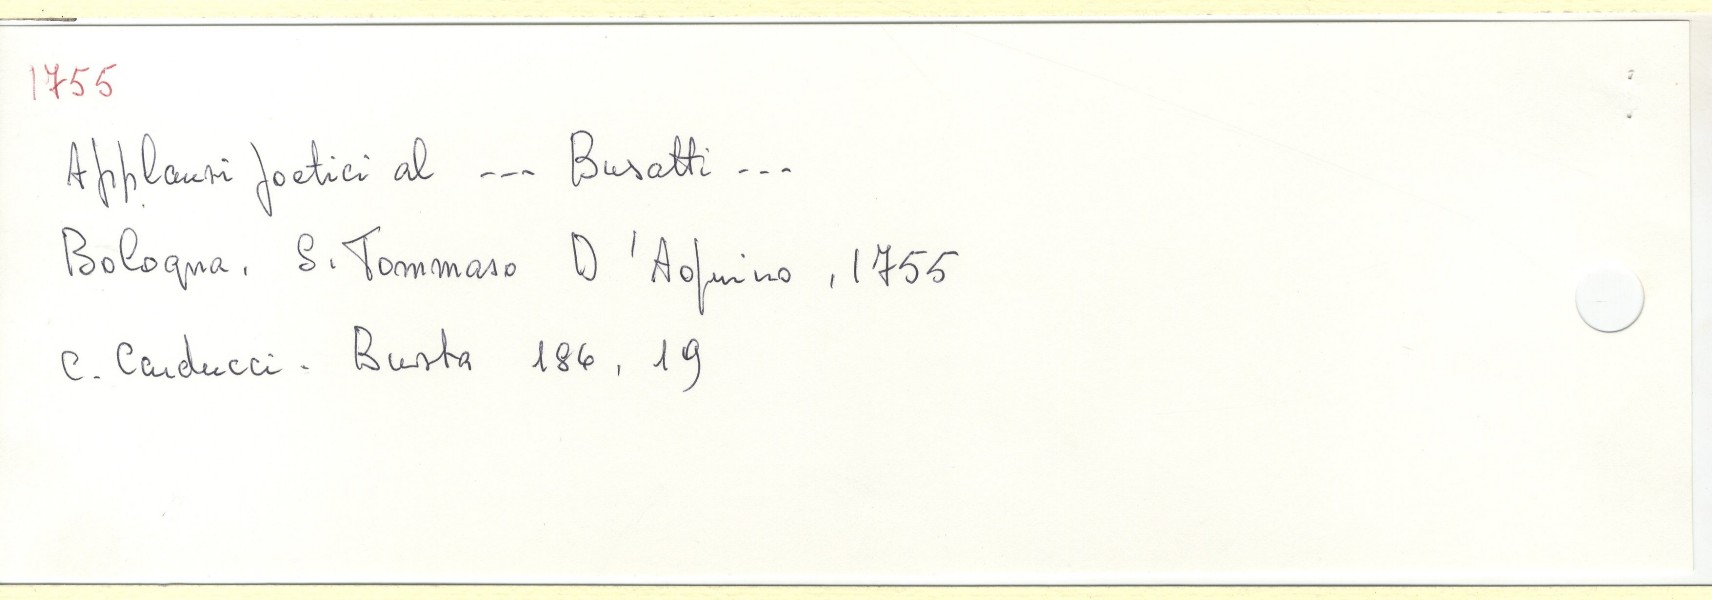 1755
Applausi poetici al --- Busatti ---
Bologna. S. Tommaso D'Aquino, 1755
C. Carducci. Busta 186, 19